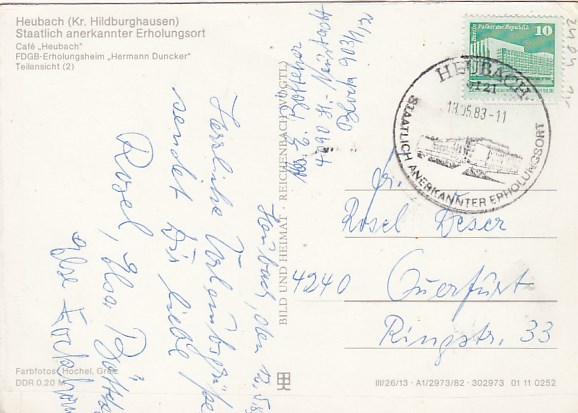 Heubach (Kr. Hildburghausen)
Staatlich anerkannter Erholungsort
Café „Heubach"
FDGB-Erholungsheim „Hermann Duncker"
Teilansicht (2)
4090 H.-Neustadt
Block 903/1/12
Heubach, den 12.5.8
Herrliche Urlaubsgrüße
sendet Dir liebe
Rosel, Elsa
BILD UND HEIMAT · REICHENBACH (VOGTL)
Berlin, Palast der Republik
10
HEUBACH
6121
18.05.83-11
STAATLICH ANERKANNTER ERHOLUNGSORT
Fr.
Rosel Beser
4240 Querfurt
Ringstr. 33
Farbfotos: Höchel, Greiz
DDR 0,20 M
III/26/13 · A1/2973/82 · 302973 01 11 0252